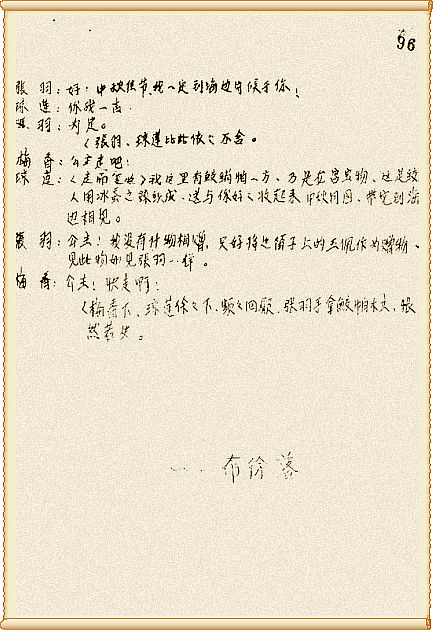 96
张 羽：好！中秋佳节，我一定到海边等候于你！
琼 莲：你我一言。
张 羽：为定。
（张羽、琼莲彼此依依不舍。
梅 香：公主走吧！
琼 莲：（走而复返）我这里有鲛绡帕一方、乃是龙宫宝物、这是鲛
人用冰蚕之丝织成、送与你好好收起来，中秋月圆、带它到海
边相见。
张 羽：公主！我没有什物相赠，只好将这笛子上的玉佩作为赠物、
见此物如见张羽一样。
梅 香：公主！快走啊！
（梅香下、琼莲徐徐下、频频回顾，张羽手拿鲛帕，怅
然若失。
布徐落